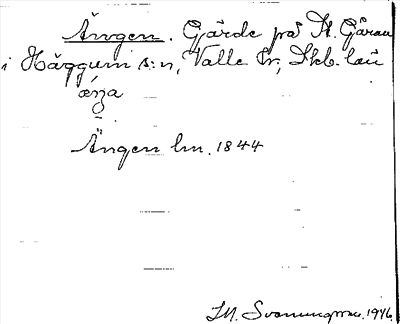 Ängen. Gärde på St. Gåran
i Häggum s:n, Valle hr, Skb. län
ænza
Ängen lm. 1844
1946.